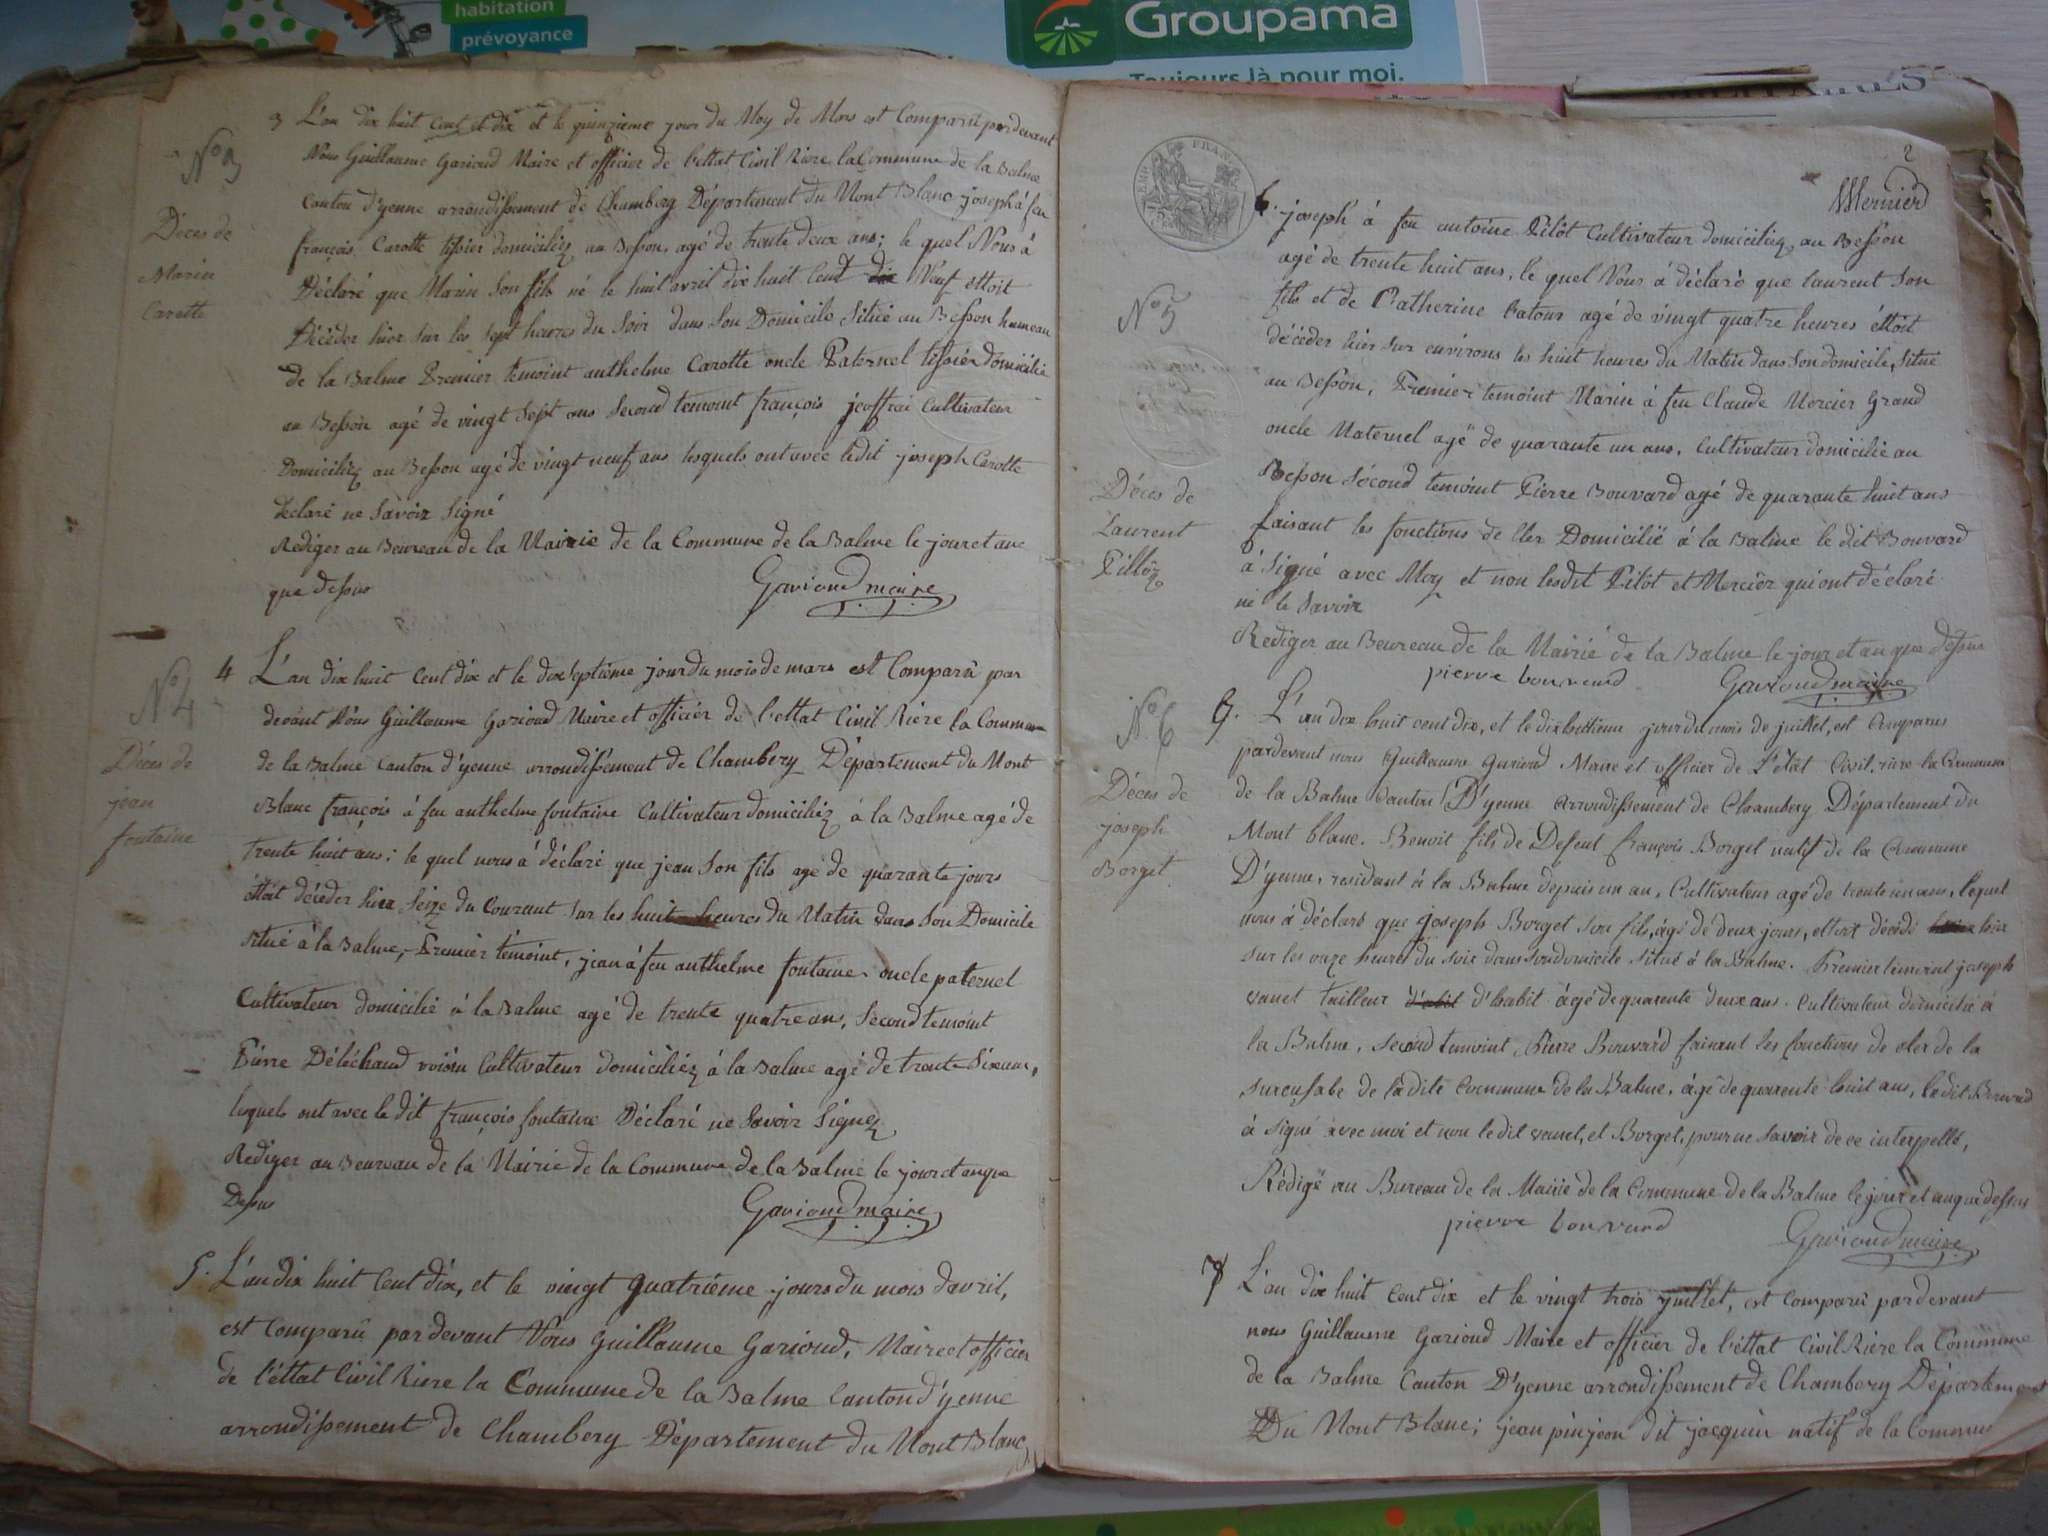 habitation
prévoyance
Groupama
Toujours là pour moi.
3 L'an dix huit cent et dix et le quinzieme jour du Moy de Mars est Comparû pardevant
Nous Guillaume Garioud Maire et officier de l'ettat Civil Riere la Commune de la Balme
Canton d'yenne arrondissement de Chambery Département du Mont Blanc joseph à feu
françois Carotte tissier domiciliéz au Besson, agé de trente deux ans; le quel Nous à
Déclaré que Marin Son fils né le huit avril dix huit Cent dix Neuf ettoit
Décéder hier sur les sept heures du Soir dans Son Domicile Situé au Besson hameau
de la Balme Premier temoint anthelme Carotte oncle Paternel tissier domicilié
au Besson agé de vingt Sept ans Second temoint françois jeoffrai Cultivateur
Domiciliéz au Besson agé de vingt neuf ans lesquels ont avec ledit joseph Carotte
declaré ne Savoir Signé
Rediger au Beureau de la Mairie de la Commune de la Balme le jour et anc
que dessus Garioud maire
No 3
Déces de
Marin
Carotte
4 L'an dix huit Cent dix et le dix septième jour du mois de mars est Comparû par
devant Nous Guillaume Garioud Maire et officier de l'ettat Civil Riere la Commune
de la Balme Canton d'yenne arrondissement de Chambery Département du Mont
Blanc françois à feu anthelme fontaine Cultivateur domiciliéz à la Balme agé de
trente huit ans; le quel nous à déclaré que jean Son fils agé de quarante jours
éttoit décéder hier Seize du Courant sur les huit heures du Matin dans Son Domicile
Situé à la Balme, Premier témoint, jean à feu anthelme fontaine oncle paternel
Cultivateur domicilié à la Balme agé de trente quatre ans, Second temoint
Pierre Déléchaud voisin Cultivateur domiciliéz à la Balme agé de trente Six ans,
lequels ont avec le dit françois fontaine Déclaré ne Savoir Signéz
Rediger au Beureau de la Mairie de la Commune de la Balme le jour et an que
Dessus Garioud maire
No 4
Déces de
jean
fontaine
5. L'an dix huit Cent dix, et le vingt quatrième jours du mois d'avril,
est Comparû par devant Nous Guillaume Garioud, Maire et officier
de l'éttat Civil Riere la Commune de la Balme Canton d'yenne
arrondissement de Chambery Département du Mont Blanc,
2
Mernier
joseph à feu antoine Pilôt Cultivateur domiciliéz au Besson
agé de trente huit ans, le quel Nous à déclaré que laurent Son
fils et de Catherine agé de vingt quatre heures éttoit
décéder hier sur environs les huit heures du Matin dans Son domicile, Situé
au Besson, Premier temoint Marin à feu Claude Mercier Grand
oncle Maternel agé de quarante un ans, Cultivateur domicilié au
Besson Sécond temoint Pierre Bouvard agé de quarante huit ans
faisant les fonctions de Cler Domicilié à la Balme le dit Bouvard
à Signé avec Moy et non lesdit Pilôt et Mercier qui ont déclaré
né le Savoir
Rediger au Beureau de la Mairié de la Balme le jour et an que dessus
pierre bouvard Garioud maire
No 5
Déces de
Laurent
Pillôz
6. L'an dix huit cent dix, et le dixhuitieme jour du mois de juillet, est Comparus
pardevant nous Guillaume Garioud Maire et officier de L'état Civil, riere la Commune
de la Balme Canton D'yenne arrondissement de Chambery Département du
Mont blanc. Benoit fils de Defeut françois Borget natif de la Commune
D'yenne, residant à la Balme depuis un an, Cultivateur agé de trente un ans, lequel
nous à déclaré que joseph Borget son fils, âgé de deux jours, ettoit décédé hier
sur les onze heures du soir dans son domicile situé à la Balme. Premier temoint joseph
vanet tailleur d'abit d'habit âgé de quarente deux ans Cultivateur domicilié à
la Balme, second temoint Pierre Bouvard faisant les fonctions de cler de la
de la dite Commune de la Balme, âgé de quarente huit ans, ledit Bouvard
à signé avec moi et non ledit vanet, et Borget, pour ne savoir de ce interpellé,
Rédigé au Bureau de la Mairie de la Commune de la Balme le jour et anque dessus
pierre bouvard Garioud maire
No 6
Déces de
joseph
Borget
7 L'an dix huit Cent dix et le vingt trois juillet, est Comparû pardevant
nous Guillaume Garioud Maire et officier de l'éttat Civil Riere la Commune
de la Balme Canton D'yenne arrondissement de Chambery Département
Du Mont Blanc; jean pinjeon dit jacquin natif de la Commune